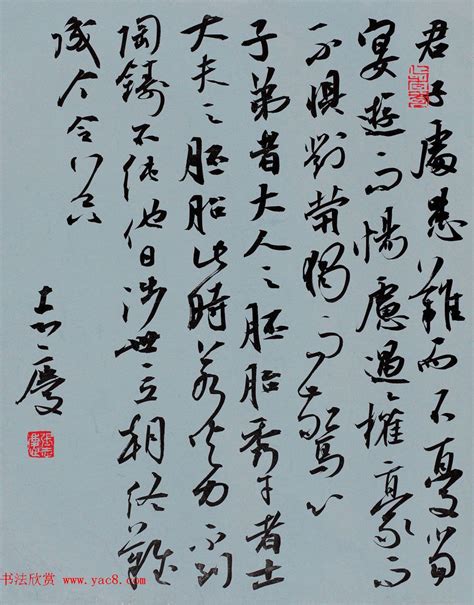 君子處患難而不憂當
宴遊而惕慮遇權豪而
不懼對煢獨而驚心
子弟者大人之胚胎秀才者士
大夫之胚胎此時若火力不到
陶鑄不純他日涉世立朝終難
成个令器
志慶
书法欣赏 www.yac8.com